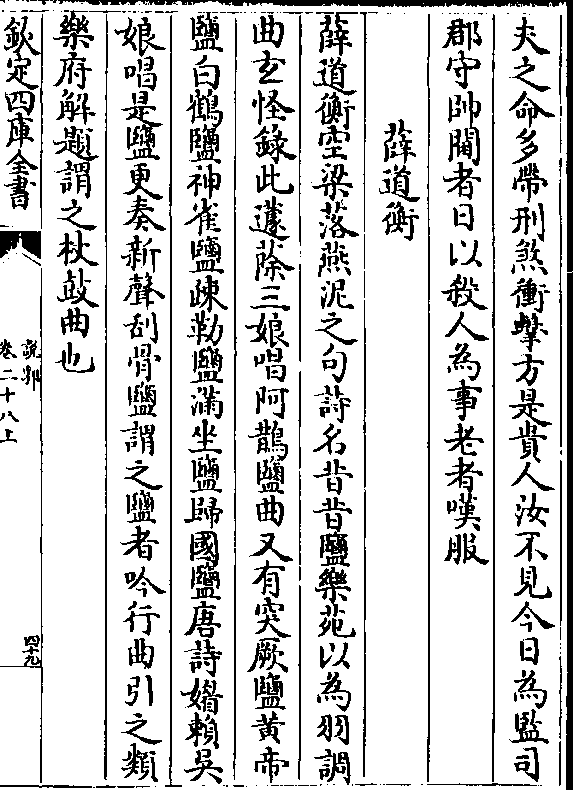 夫之命多帶刑煞衝擊方是貴人汝不見今日為監司
郡守帥閫者日以殺人為事老者嘆服
薛道衡
薛道衡空梁落燕泥之句詩名昔昔鹽樂苑以為羽調
曲玄怪錄此蘧蒢三娘唱阿鵲鹽曲又有突厥鹽黄帝
鹽白鶴鹽神雀鹽疎勒鹽滿坐鹽歸國鹽唐詩媚賴吳
娘唱是鹽更奏新聲刮骨鹽謂之鹽者吟行曲引之類
樂府解題謂之杖鼓曲也
欽定四庫全書
說郛
卷二十八上
四十九